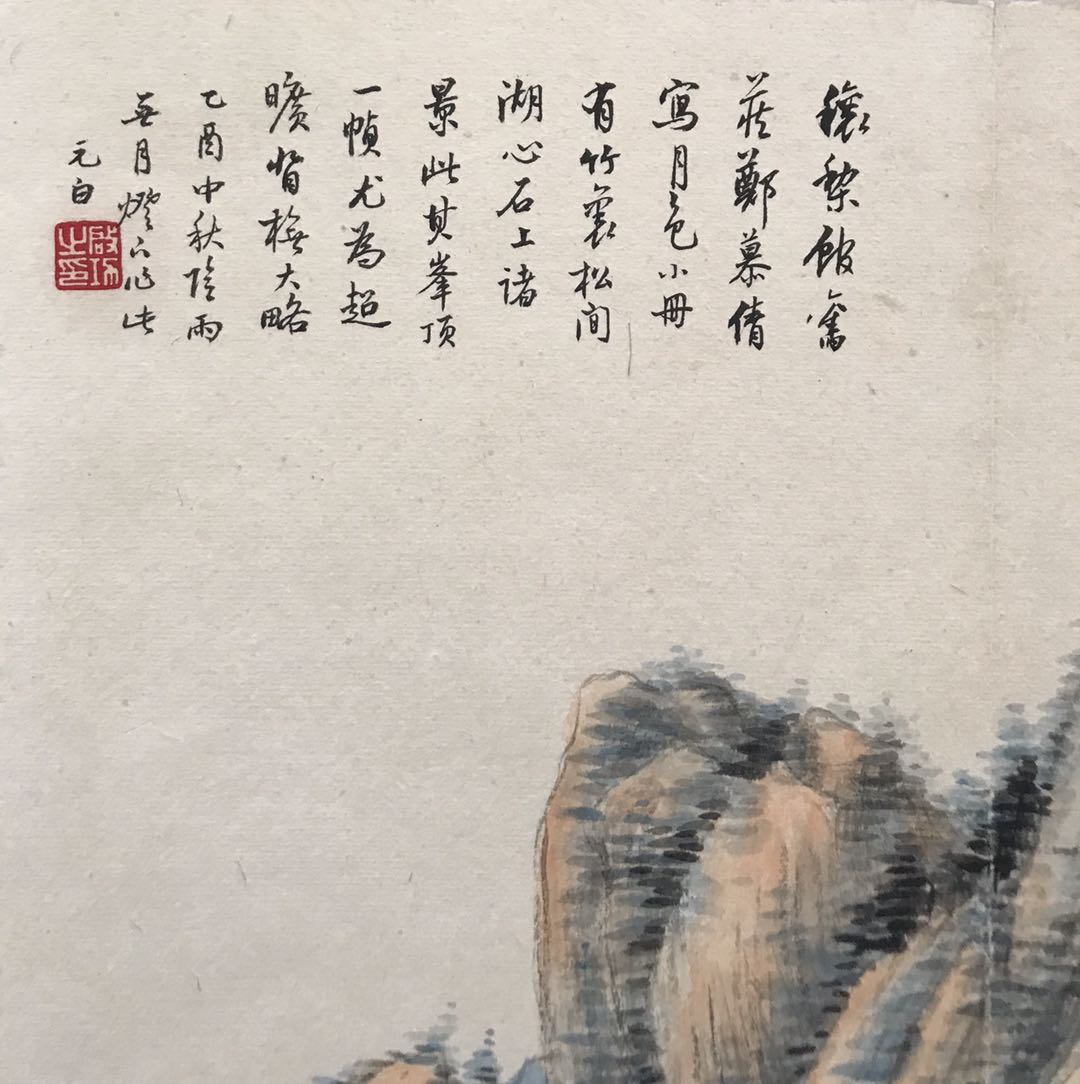 穰梨館舊
藏鄭慕倩
寫月色小冊
有竹裏松間
湖心石上諸
景此其峯頂
一幀尤為超
曠背橅大略
乙酉中秋陰雨
無月燈下作此
元白
啟功之印